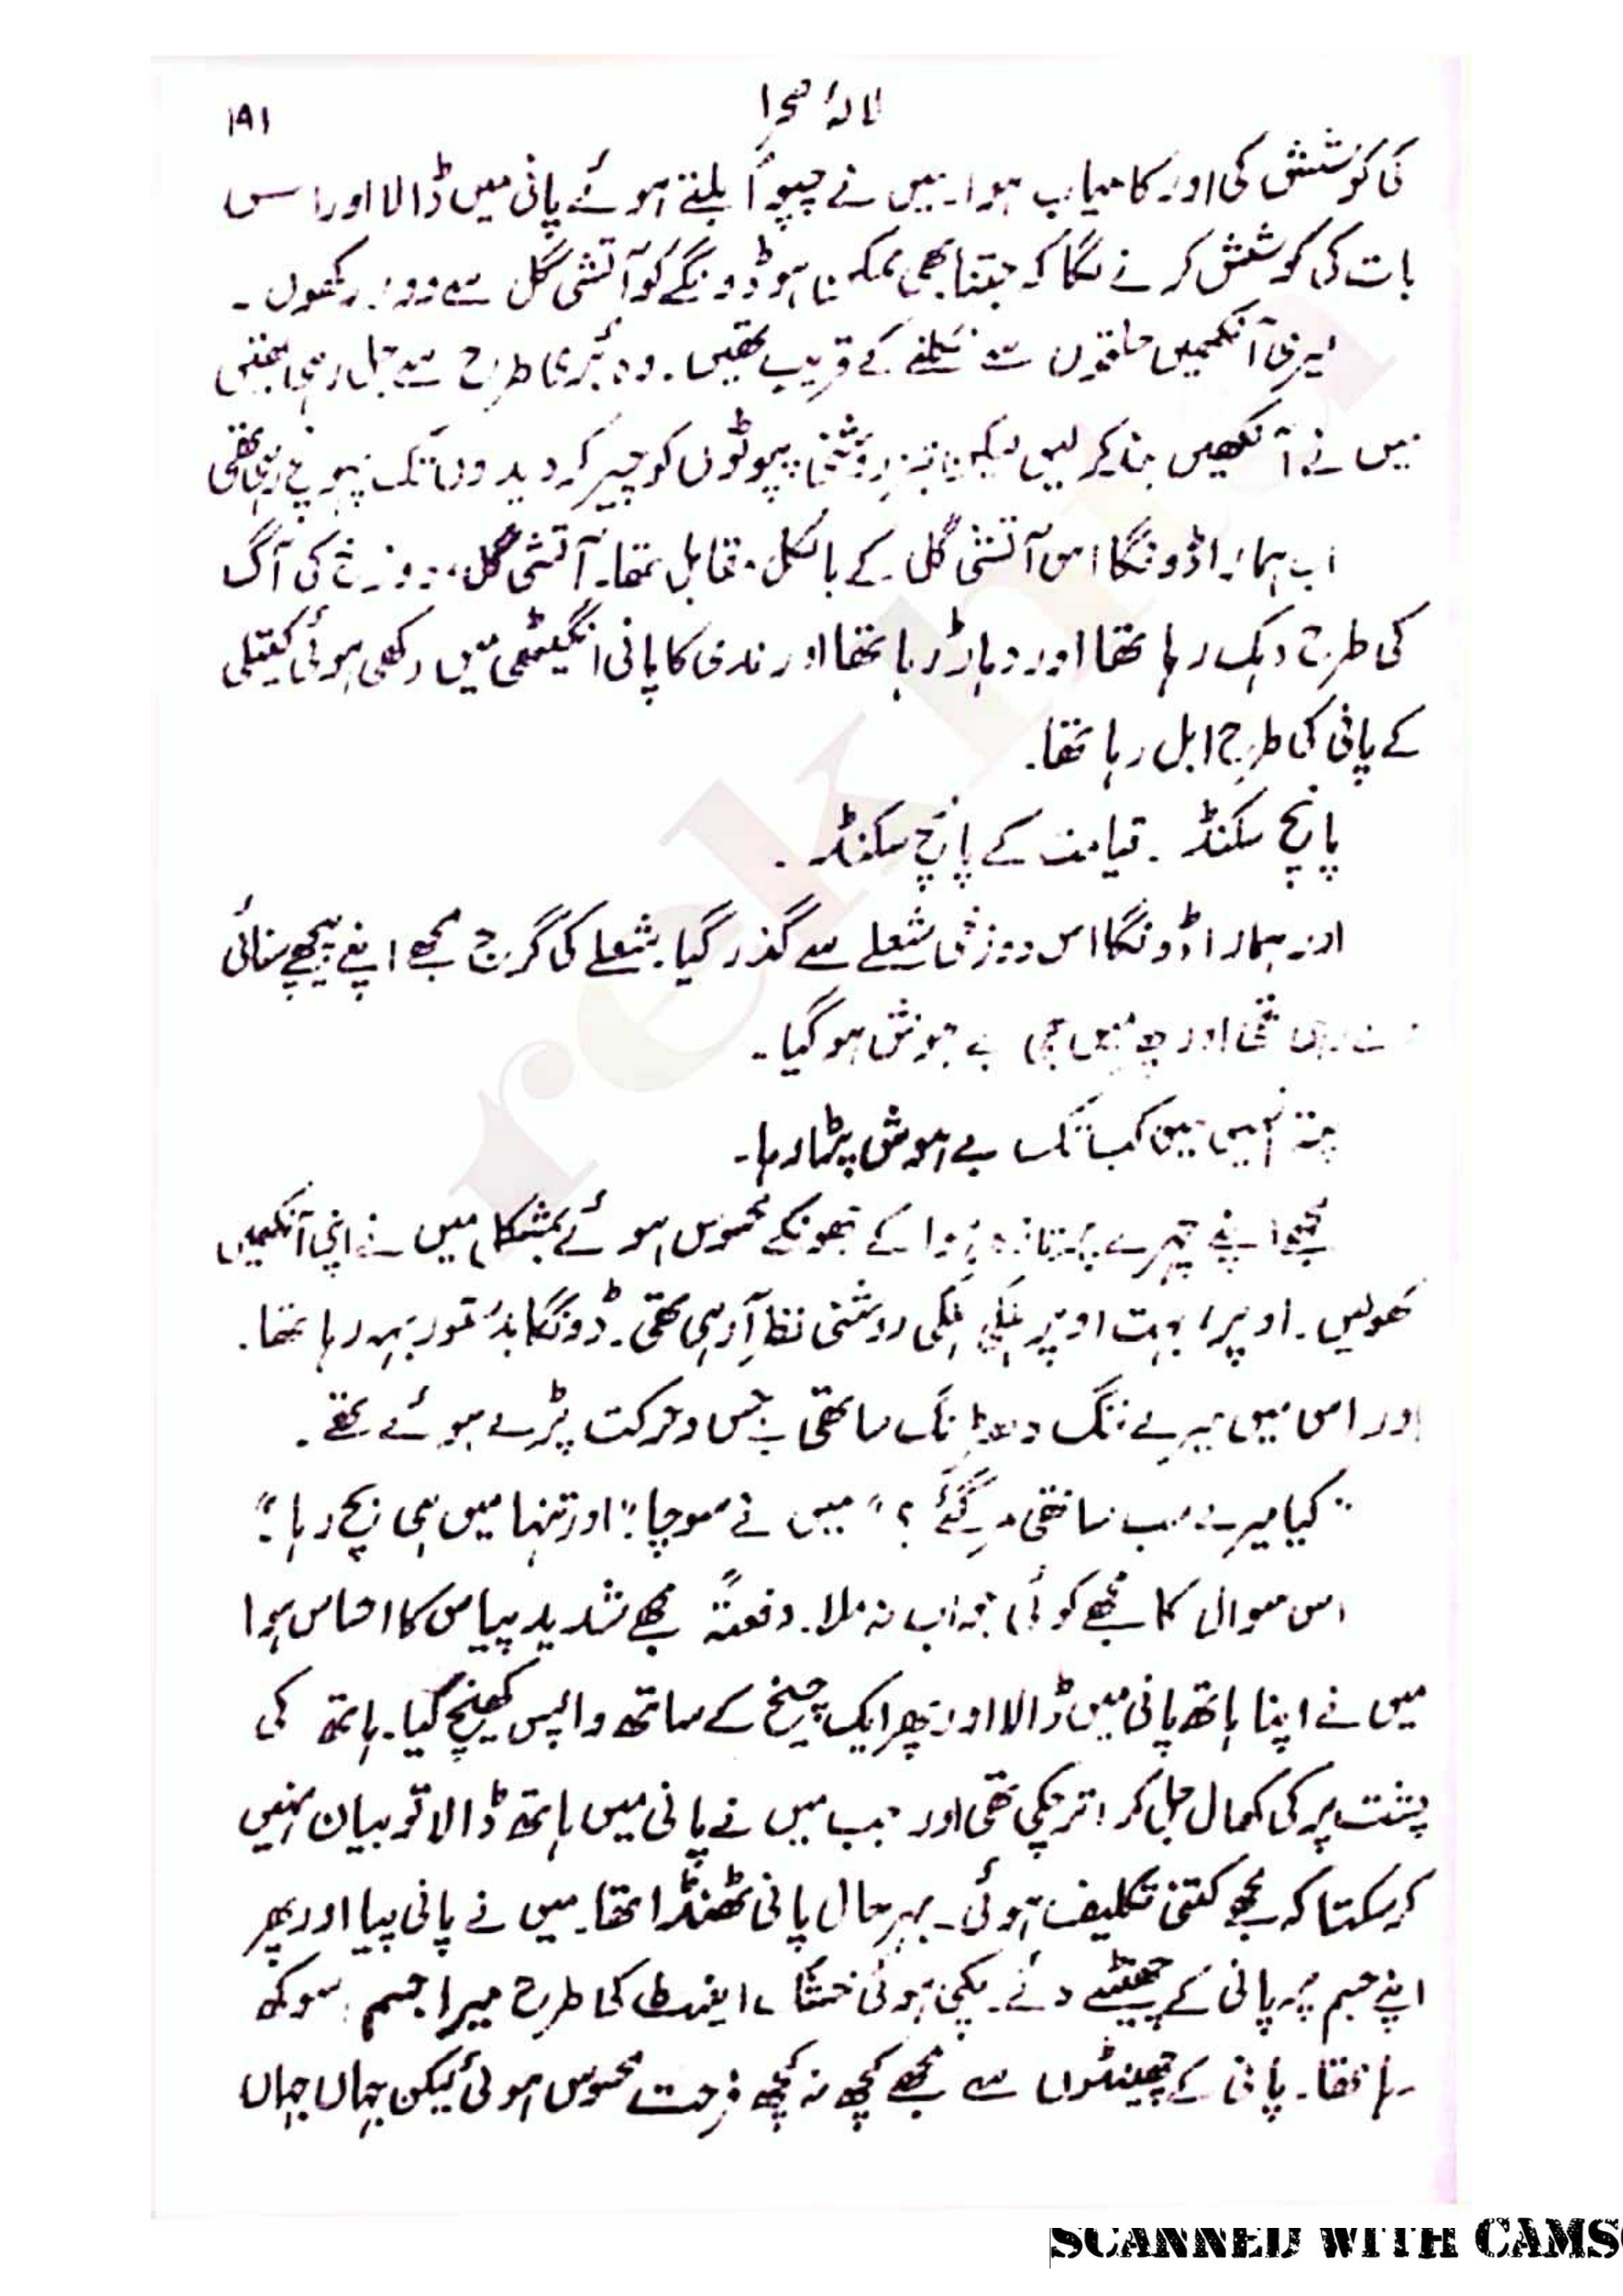 لالۂ صحرا ۱۹۱
کی کوشش کی اور کامیاب ہوا۔ میں نے چپو اُبلتے ہوئے پانی میں ڈالا اور اس
بات کی کوشش کرنے لگا کہ جتنا بھی ممکن ہو ڈونگے کو آتشی گل سے دور رکھوں۔
میری آنکھیں حلقوں سے نکلنے کے قریب تھیں۔ وہ بُری طرح سے جل رہی تھیں
میں نے آنکھیں بند کر لیں لیکن تیز روشنی پپوٹوں کو چیر کر دیدوں تک پہونچ رہی تھی
اب ہمارا ڈونگا اس آتشی گل کے بالکل مقابل تھا۔ آتشی گل، دوزخ کی آگ
کی طرح دہک رہا تھا اور دہاڑ رہا تھا اور ندی کا پانی انگیٹھی میں رکھی ہوئی کیتلی
کے پانی کی طرح ابل رہا تھا۔
پانچ سکنڈ۔ قیامت کے پانچ سکنڈ۔
اور ہمارا ڈونگا اس دوزخی شعلے سے گذر گیا۔ شعلے کی گرج مجھے اپنے پیچھے سنائی
دے رہی تھی اور پھر میں بھی بے ہوش ہو گیا۔
پتہ نہیں میں کب تک بے ہوش پڑا رہا۔
مجھے اپنے چہرے پر تازہ ہوا کے جھونکے محسوس ہوئے بمشکل میں نے اپنی آنکھیں
کھولیں۔ اوپر، بہت اوپر ہلکی ہلکی روشنی نظر آ رہی تھی۔ ڈونگا بدستور بہہ رہا تھا۔
اور اس میں میرے ننگ دھڑنگ ساتھی بے حس و حرکت پڑے ہوئے تھے۔
"کیا میرے سب ساتھی مر گئے؟" میں نے سوچا۔ "اور تنہا میں ہی بچ رہا؟"
اس سوال کا مجھے کوئی جواب نہ ملا۔ دفعتہً مجھے شدید پیاس کا احساس ہوا
میں نے اپنا ہاتھ پانی میں ڈالا اور پھر ایک چیخ کے ساتھ واپس کھینچ لیا۔ ہاتھ کی
پشت پر کی کھال جل کر اتر چکی تھی اور جب میں نے پانی میں ہاتھ ڈالا تو بیان نہیں
کر سکتا کہ مجھے کتنی تکلیف ہوئی۔ بہر حال پانی ٹھنڈا تھا۔ میں نے پانی پیا اور پھر
اپنے جسم پر پانی کے چھینٹے دئے۔ پکی ہوئی خشک اینٹ کی طرح میرا جسم سوکھ
رہا تھا۔ پانی کے چھینٹوں سے مجھے کچھ نہ کچھ فرحت محسوس ہوئی لیکن جہاں جہاں
rekh
SCANNED WITH CAMS